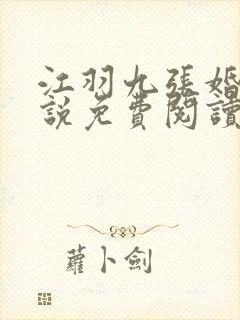 江羽九張婚
說免費閱讀
蘿卜劍